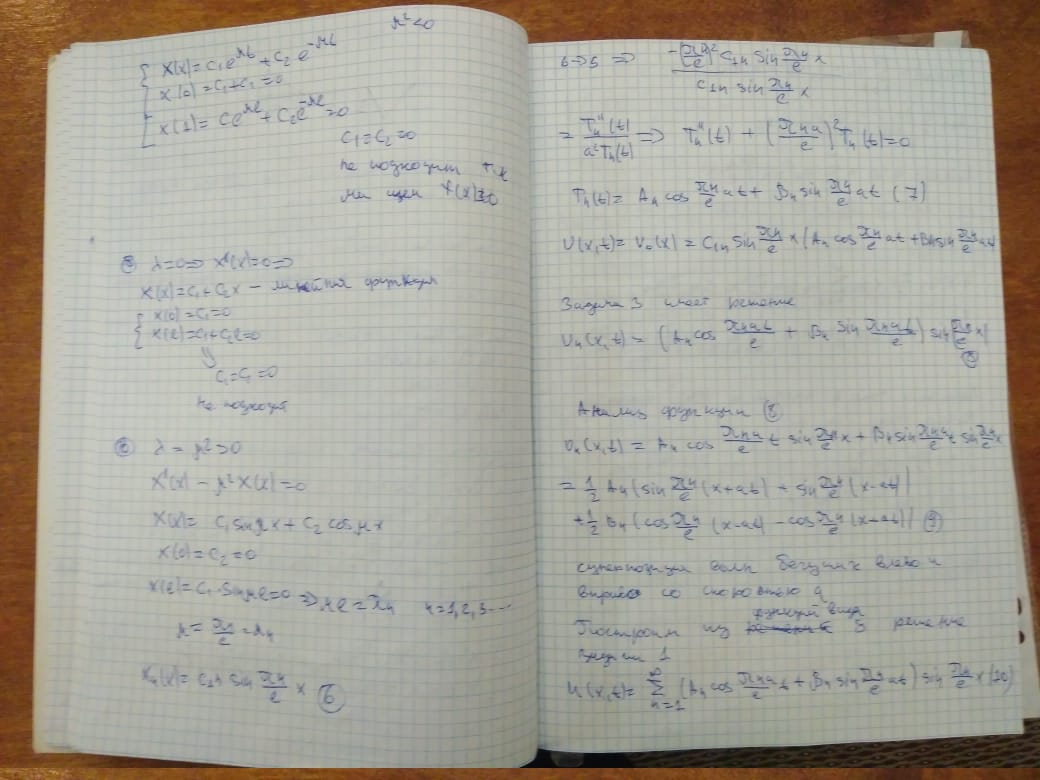 μ²<0
X(x)= C₁e^{μb} + C₂e^{-μb}
X(0)=C₁+C₁=0
X(1)= Ce^{μe} + C₂e^{-μe}=0
C₁=C₂=0
не подходит т.к
мы ищем X(x)≢0
② λ=0 => X''(x)=0 =>
X(x)=C₁+C₂x – линейная функция
X(0)=C₁=0
X(e)=C₁+C₂e=0
⇓
C₁=C₁=0
не подходит
λ = μ²>0
X''(x) - μ²X(x)=0
X(x)= C₁ sin μx + C₂ cos μx
X(0)=C₂=0
X(e)=C₁·sin μe=0 => μe=πn n=1,2,3...
μ= πn/e =μn
Xn(x)= C₁n sin πn/e x (6)
6->5 => -(πn/e)² C₁n sin πn/e x / C₁n sin πn/e x
= Tn''(t)/a²Tn(t) => Tn''(t) + (πna/e)²Tn(t)=0
Tn(t)= An cos πn/e at + Bn sin πn/e at (7)
U(x,t)= Uₙ(x) = C₁n sin πn/e x (An cos πn/e at + Bn sin πn/e at)
Задача 3 имеет решение
Un(x,t) = (An cos πnat/e + Bn sin πnat/e) sin(πn/e x) (8)
Анализ функции (8)
Un(x,t) = An cos πna/e t sin πn/e x + Bn sin πna/e t sin πn/e x
= 1/2 An (sin πn/e (x+at) + sin πn/e (x-at))
+ 1/2 Bn (cos πn/e (x-at) - cos πn/e (x+at)) (9)
суперпозиция волн бегущих влево и
вправо со скоростью a
функций вида
Построим из 5 решение
задачи 1
U(x,t)= ∞∑n=1 (An cos πna/e t + Bn sin πn/e at) sin πn/e x (10)